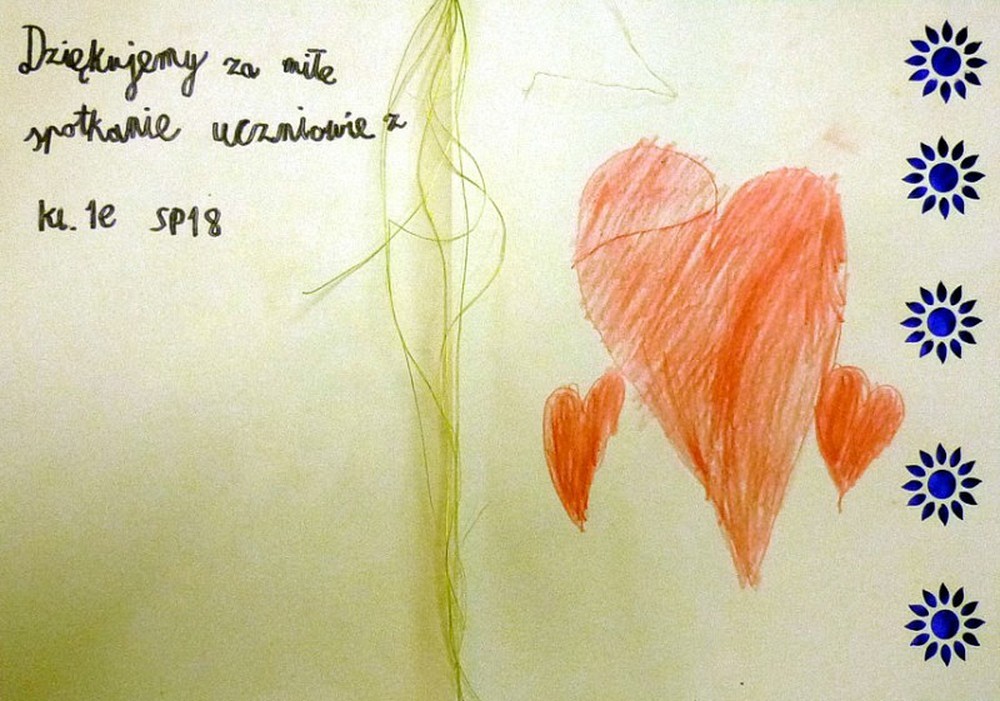 Dziękujemy za miłe
spotkanie uczniowie z
kl. 1e SP18